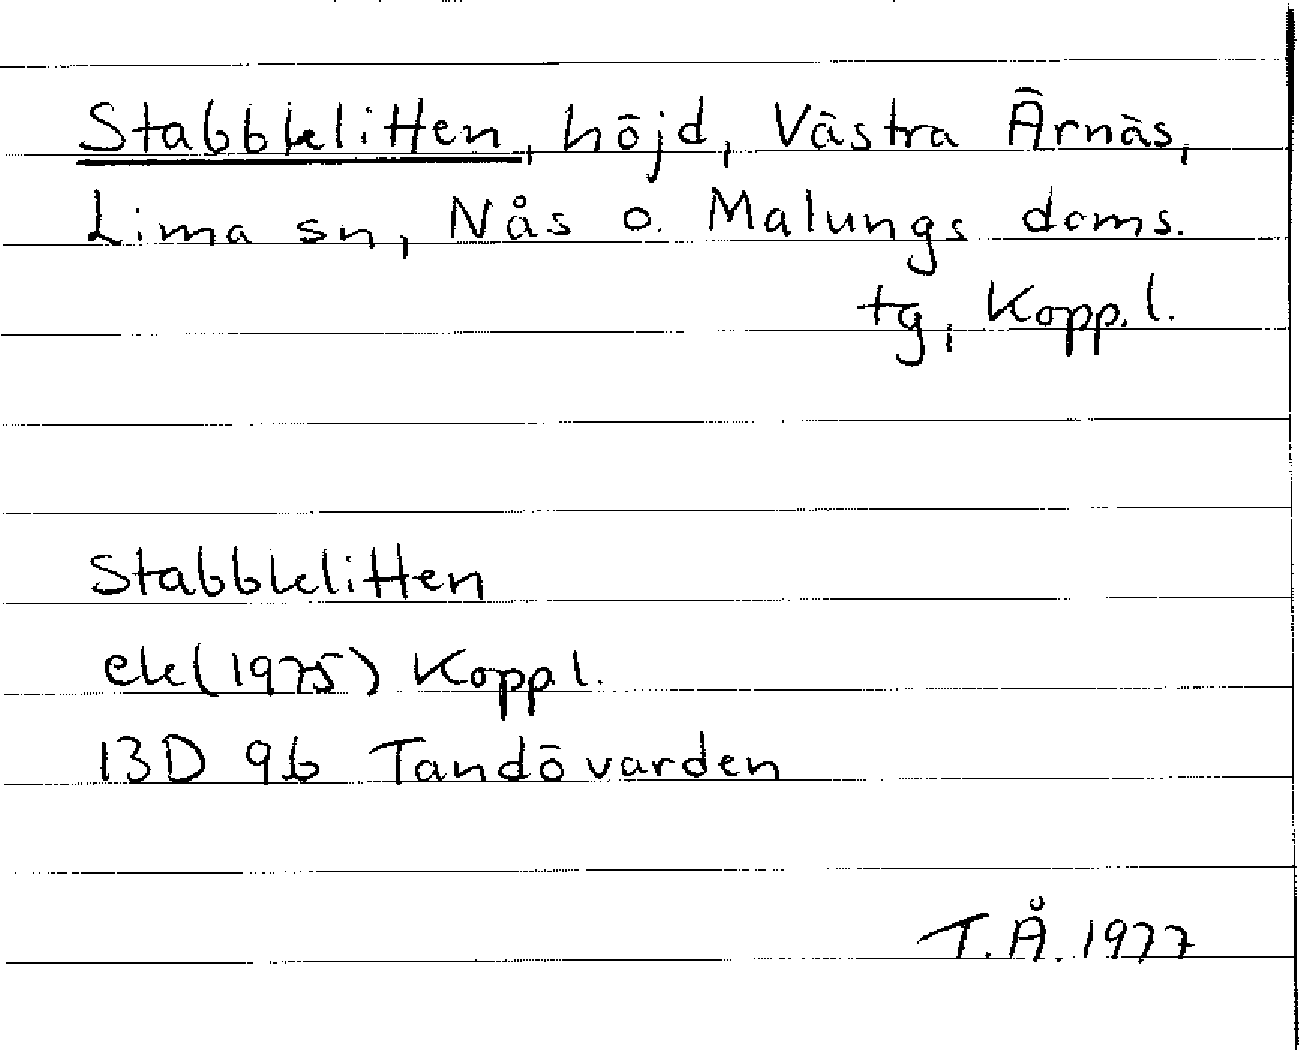 Stabbklitten, höjd, Västra Ärnäs,
Lima sn, Nås o. Malungs doms.
tg, Kopp. l.
Stabbklitten
ek (1975) Kopp. l.
13D 9b Tandövarden
T.Å. 1977